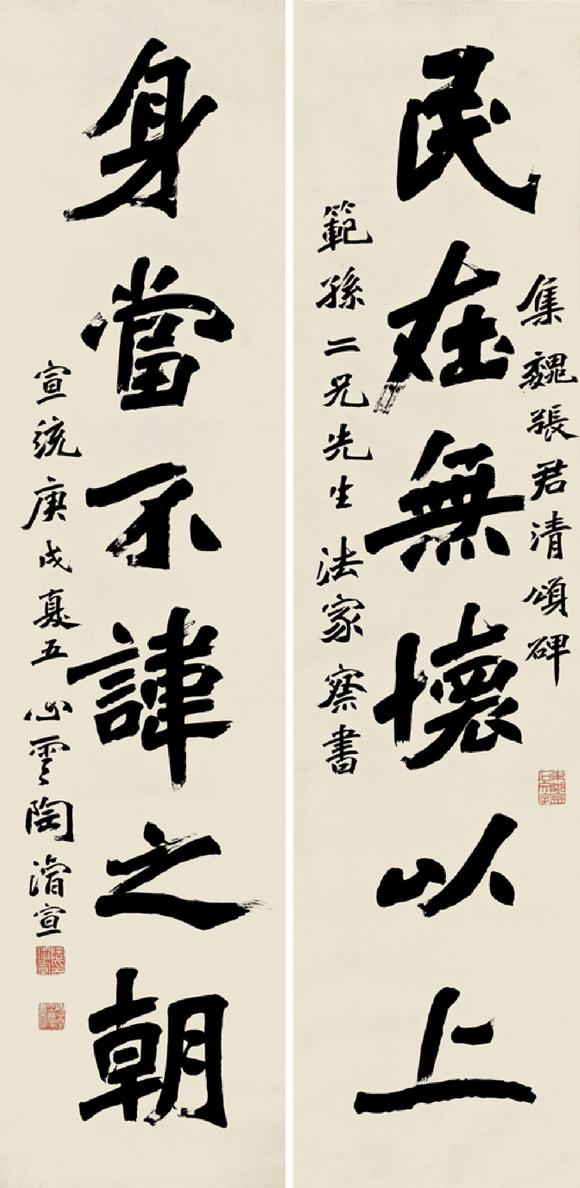 集魏張君清頌碑
民在無懷以上
範孫二兄先生法家察書
身當不諱之朝
宣統庚戌夏五心雲陶濬宣